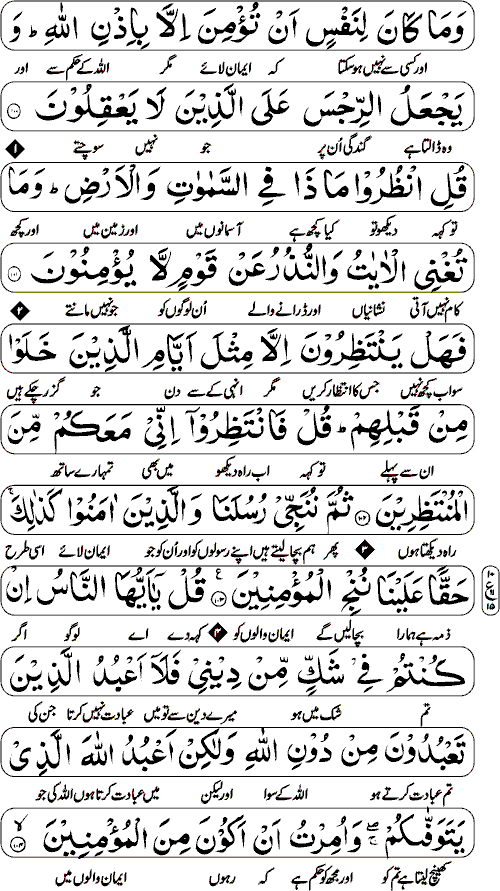 وَمَا كَانَ لِنَفْسٍ اَنْ تُؤْمِنَ اِلَّا بِاِذْنِ اللّٰهِ ؕ وَ
اور کسی سے نہیں ہو سکتا کہ ایمان لائے مگر اللہ کے حکم سے اور
يَجْعَلُ الرِّجْسَ عَلَى الَّذِيْنَ لَا يَعْقِلُوْنَ ۝۱۰۰
وہ ڈالتا ہے گندگی اُن پر جو نہیں سوچتے ۱
قُلِ انْظُرُوْا مَا ذَا فِي السَّمٰوٰتِ وَالْاَرْضِ ؕ وَمَا
تو کہہ دیکھو تو کیا کچھ ہے آسمانوں میں اور زمین میں اور کچھ
تُغْنِي الْاٰيٰتُ وَالنُّذُرُ عَنْ قَوْمٍ لَّا يُؤْمِنُوْنَ ۝۱۰۱
کام نہیں آتی نشانیاں اور ڈرانے والے اُن لوگوں کو جو نہیں مانتے ۲
فَهَلْ يَنْتَظِرُوْنَ اِلَّا مِثْلَ اَيَّامِ الَّذِيْنَ خَلَوْا
سو اب کچھ نہیں جس کا انتظار کریں مگر انہی کے سے دن جو گزر چکے ہیں
مِنْ قَبْلِهِمْ ؕ قُلْ فَانْتَظِرُوْٓا اِنِّيْ مَعَكُمْ مِّنَ
ان سے پہلے تو کہہ اب راہ دیکھو میں بھی تمہارے ساتھ
الْمُنْتَظِرِيْنَ ۝۱۰۲ ثُمَّ نُنَجِّيْ رُسُلَنَا وَالَّذِيْنَ اٰمَنُوْا كَذٰلِكَ ۚ
راہ دیکھتا ہوں ۳ پھر ہم بچا لیتے ہیں اپنے رسولوں کو اور اُن کو جو ایمان لائے اسی طرح
حَقًّا عَلَيْنَا نُنْجِ الْمُؤْمِنِيْنَ ۝۱۰۳ ع قُلْ يٰٓاَيُّهَا النَّاسُ اِنْ
ذمہ ہے ہمارا بچا لیں گے ایمان والوں کو ۴ کہہ دے اے لوگو اگر
كُنْتُمْ فِيْ شَكٍّ مِّنْ دِيْنِيْ فَلَآ اَعْبُدُ الَّذِيْنَ
تم شک میں ہو میرے دین سے تو میں عبادت نہیں کرتا جن کی
تَعْبُدُوْنَ مِنْ دُوْنِ اللّٰهِ وَلٰكِنْ اَعْبُدُ اللّٰهَ الَّذِيْ
تم عبادت کرتے ہو اللہ کے سوا اور لیکن میں عبادت کرتا ہوں اللہ کی جو
يَتَوَفّٰىكُمْ ۖۚ وَاُمِرْتُ اَنْ اَكُوْنَ مِنَ الْمُؤْمِنِيْنَ ۝۱۰۴ ۙ
کھینچ لیتا ہے تم کو اور مجھ کو حکم ہے کہ رہوں ایمان والوں میں